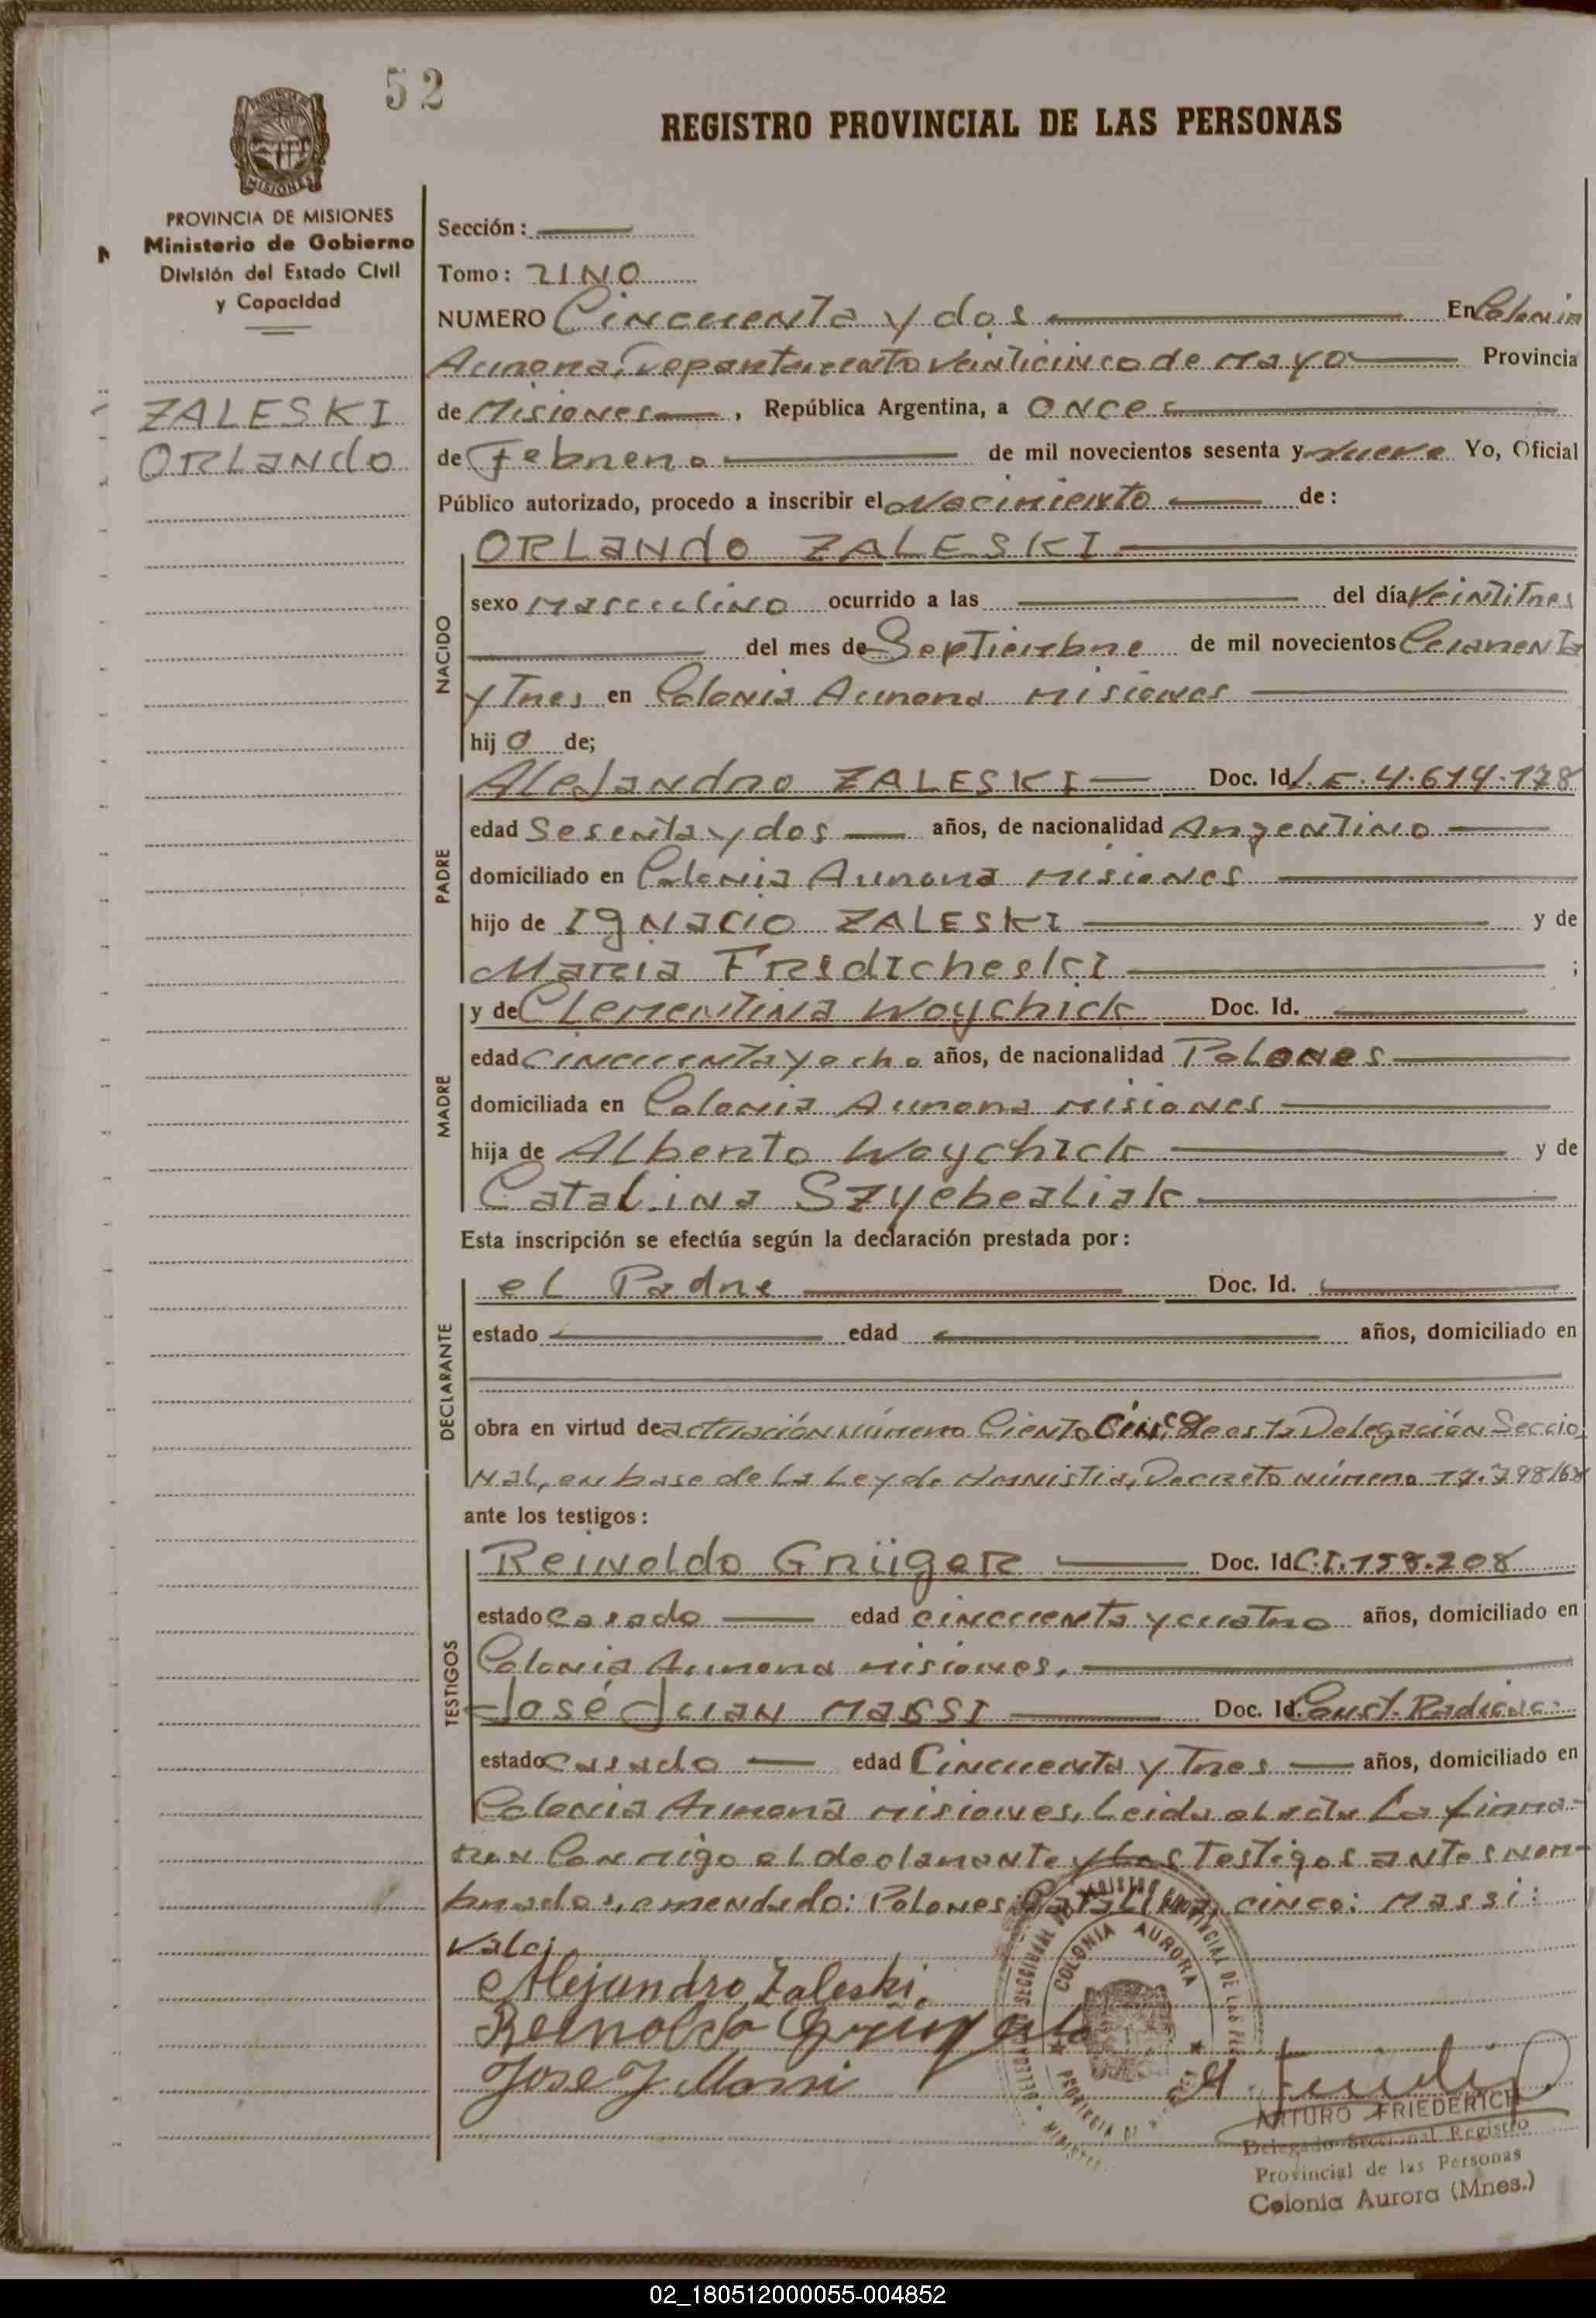 52
REGISTRO PROVINCIAL DE LAS PERSONAS
PROVINCIA DE MISIONES
Ministerio de Gobierno
División del Estado Civil
y Capacidad
ZALESKI
ORLANDO
Sección:
Tomo: UNO
NUMERO Cincuenta y dos En Colonia
Aurora, Departamento Veinticinco de Mayo Provincia
de Misiones, República Argentina, a once
de Febrero de mil novecientos sesenta y nueve Yo, Oficial
Público autorizado, procedo a inscribir el Nacimiento de:
NACIDO
ORLANDO ZALESKI
sexo Masculino ocurrido a las del día Veintitres
del mes de Septiembre de mil novecientos Cuarenta
y Tres en Colonia Aurora Misiones
hijo de;
PADRE
Alejandro ZALESKI Doc. Id L.E. 4.614.178
edad Sesenta y dos años, de nacionalidad Argentino
domiciliado en Colonia Aurora Misiones
hijo de Ignacio ZALESKI y de
Maria Fridicheski ;
MADRE
y de Clementina Woychick Doc. Id.
edad cincuenta y ocho años, de nacionalidad Polones
domiciliada en Colonia Aurora Misiones
hija de Alberto Woychick y de
Catalina Szyebealiak
Esta inscripción se efectúa según la declaración prestada por:
DECLARANTE
el Padre Doc. Id.
estado edad años, domiciliado en
obra en virtud de actuación número Ciento Cinco de esta Delegación Seccio
nal, en base de La Ley de Amnistia, Decreto número 17.798/68
ante los testigos:
TESTIGOS
Reinoldo Grüger Doc. Id C.I. 158.208
estado casado edad cincuenta y cuatro años, domiciliado en
Colonia Aurora Misiones.
José Juan MASSI Doc. Id. Const. Radicac.
estado casado edad Cincuenta y Tres años, domiciliado en
Colonia Aurora Misiones, Leida el acta La firma-
ran Conmigo el declarante y Los Testigos antes nom-
brados, emendado: Polones: Catalina, cinco: Massi:
Vale:
Alejandro Zaleski.
Reinoldo
Jose J Massi
COLONIA AURORA
ARTURO FRIEDERICH
Delegado Seccional Registro
Provincial de las Personas
Colonia Aurora (Mnes.)
02_180512000055-004852